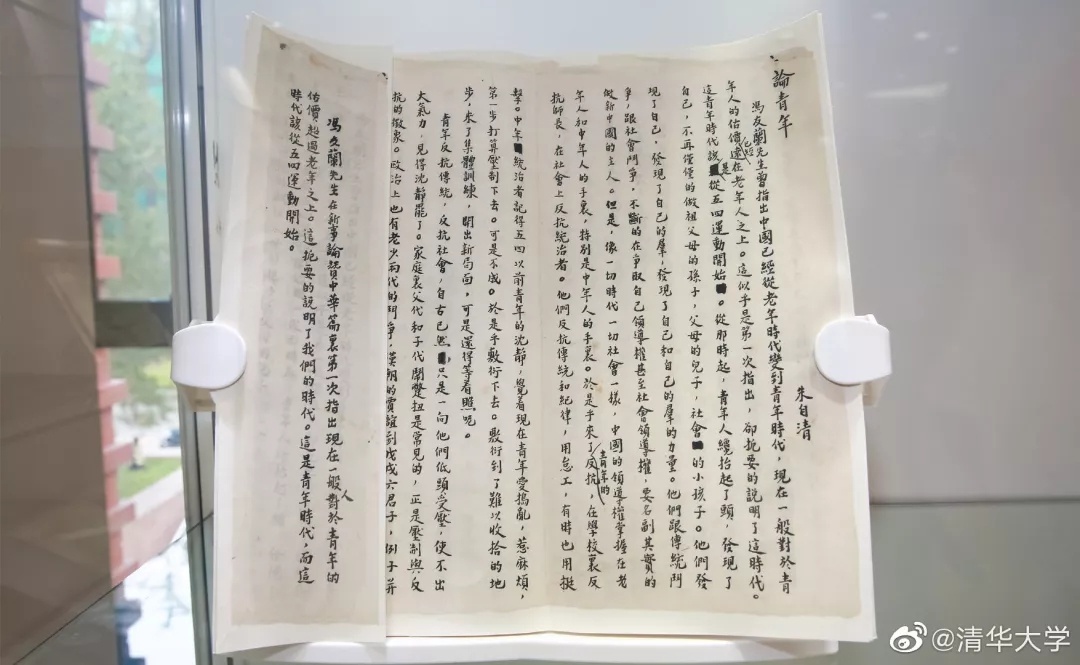 論青年
朱自清
馮友蘭先生曾指出中國已經從老年時代變到青年時代，現在一般對於青
年人的估價已經還在老年人之上。這似乎是第一次指出，卻扼要的說明了這時代。
這青年時代該是從五四運動開始。從那時起，青年人纔抬起了頭，發現了
自己，不再僅僅的做祖父母的孫子，父母的兒子，社會的小孩子。他們發
現了自己，發現了自己的羣，發現了自己和自己的羣的力量。他們跟傳統鬥
爭，跟社會鬥爭，不斷的在爭取自己領導權甚至社會領導權，要名副其實的
做新中國的主人。但是，像一切時代一切社會一樣，中國的領導權掌握在老
年人和中年人的手裏，特別是中年人的手裏。於是乎來了青年的反抗，在學校裏反
抗師長，在社會上反抗統治者。他們反抗傳統和紀律，用怠工，有時也用挺
擊。中年統治者記得五四以前青年的沈靜，覺着現在青年愛搗亂，惹麻煩，
第一步打算壓制下去。可是不成。於是乎敷衍下去。敷衍到了難以收拾的地
步，來了集體訓練，開出新局面，可是還得等着瞧呢。
青年反抗傳統，反抗社會，自古已然，只是一向他們低頭受壓，使不出
大氣力，見得沈靜罷了。家庭裏父代和子代鬧彆扭是常見的，正是壓制與反
抗的徵象。政治上也有老少兩代的鬥爭，漢朝的賈誼到戊戌六君子，例子并
馮友蘭先生在新事論贊中華篇裏第一次指出現在一般人對於青年的
估價超過老年之上。這扼要的說明了我們的時代。這是青年時代，而這
時代該從五四運動開始。
@清华大学